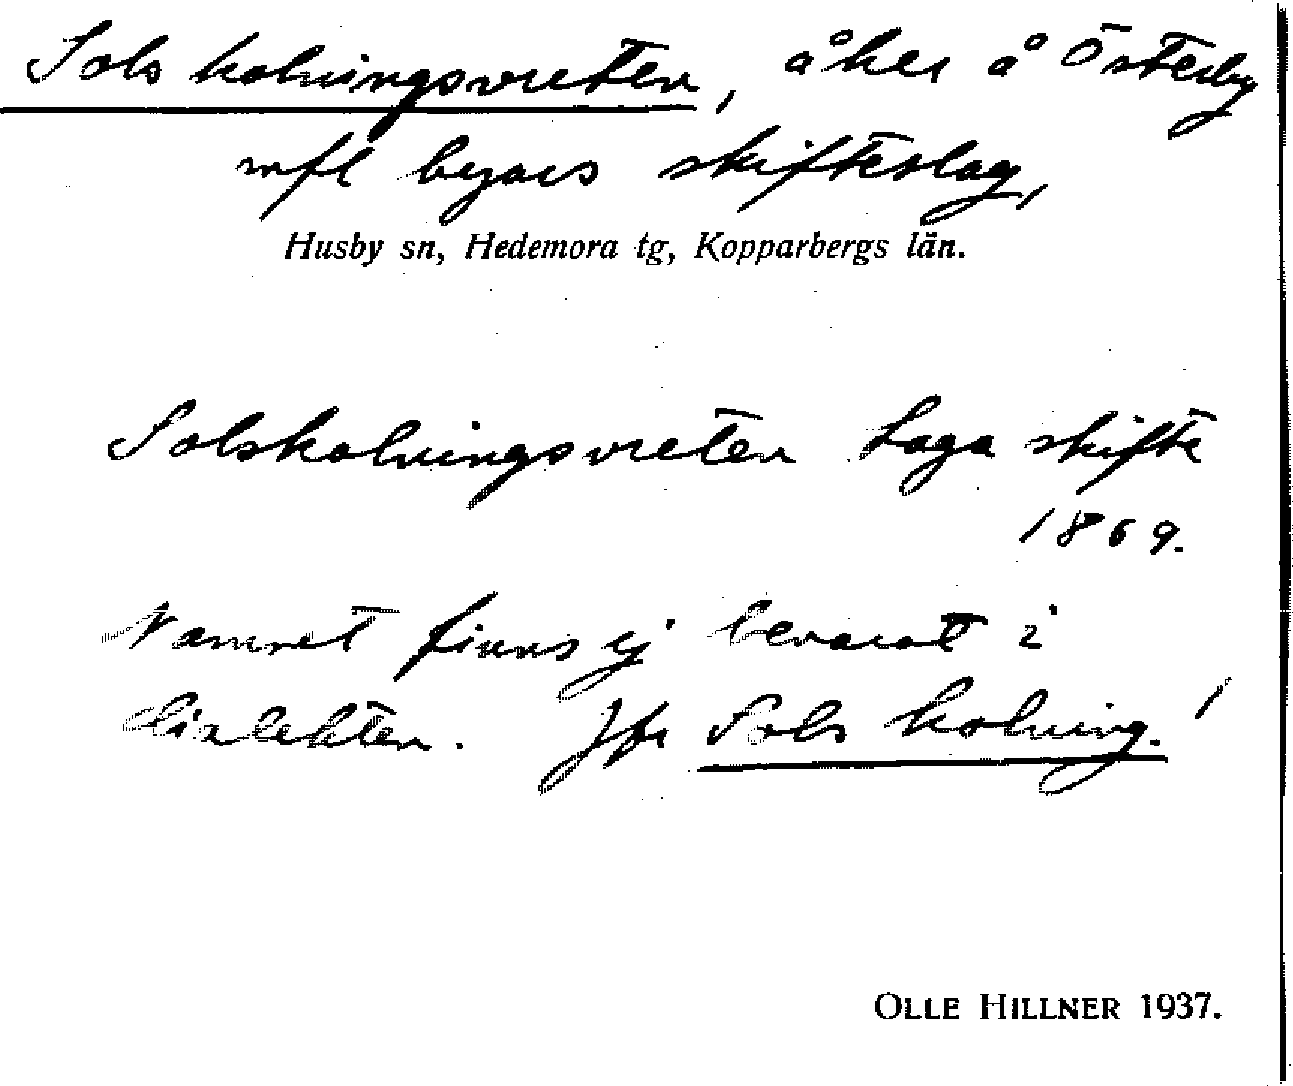 Sols kolningsvreten, åker å Österby
mfl byars skifteslag,
Husby sn, Hedemora tg, Kopparbergs län.
Solskolningsvreten Laga skifte
1869.
Namnet finns ej bevarat i
dialekten. Jfr Sols kolning!
OLLE HILLNER 1937.